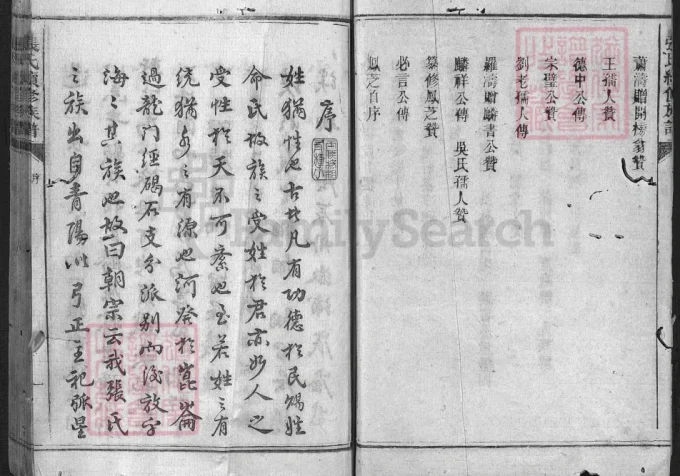 蕭濤贈開楊翁贊
王孺人贊
德中公傳
宗璧公贊
劉老孺人傳
羅濤贈麟書公贊
麟祥公傳 吳氏孺人贊
纂修鳳芝贊
必言公傳
鳳芝自序
FamilySearch
序
姓猶性也古者凡有功德於民賜姓
命氏故族之受姓於君亦如人之
受性於天不可紊也至若姓之有
統猶水之有源也河發於崑崙
過龍門經碣石支分派別而後放乎
海之其族也故曰朝宗云我張氏
之族出自青陽以弓正主祀弧星
張氏續修族譜
序